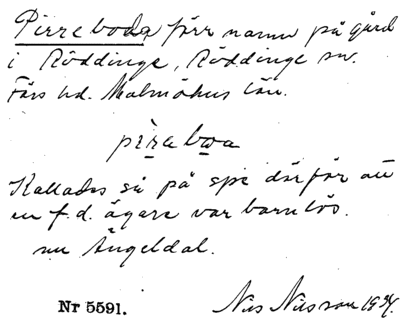 Pirreboda förr namn på gård
i Röddinge, Röddinge sn.
Färs hd. Malmöhus län.
pirabωa
Kallades så på spe därför att
en f.d. ägare var barnlös.
nu Ängeldal.
Nr 5591.
Nils Nilsson 1934.